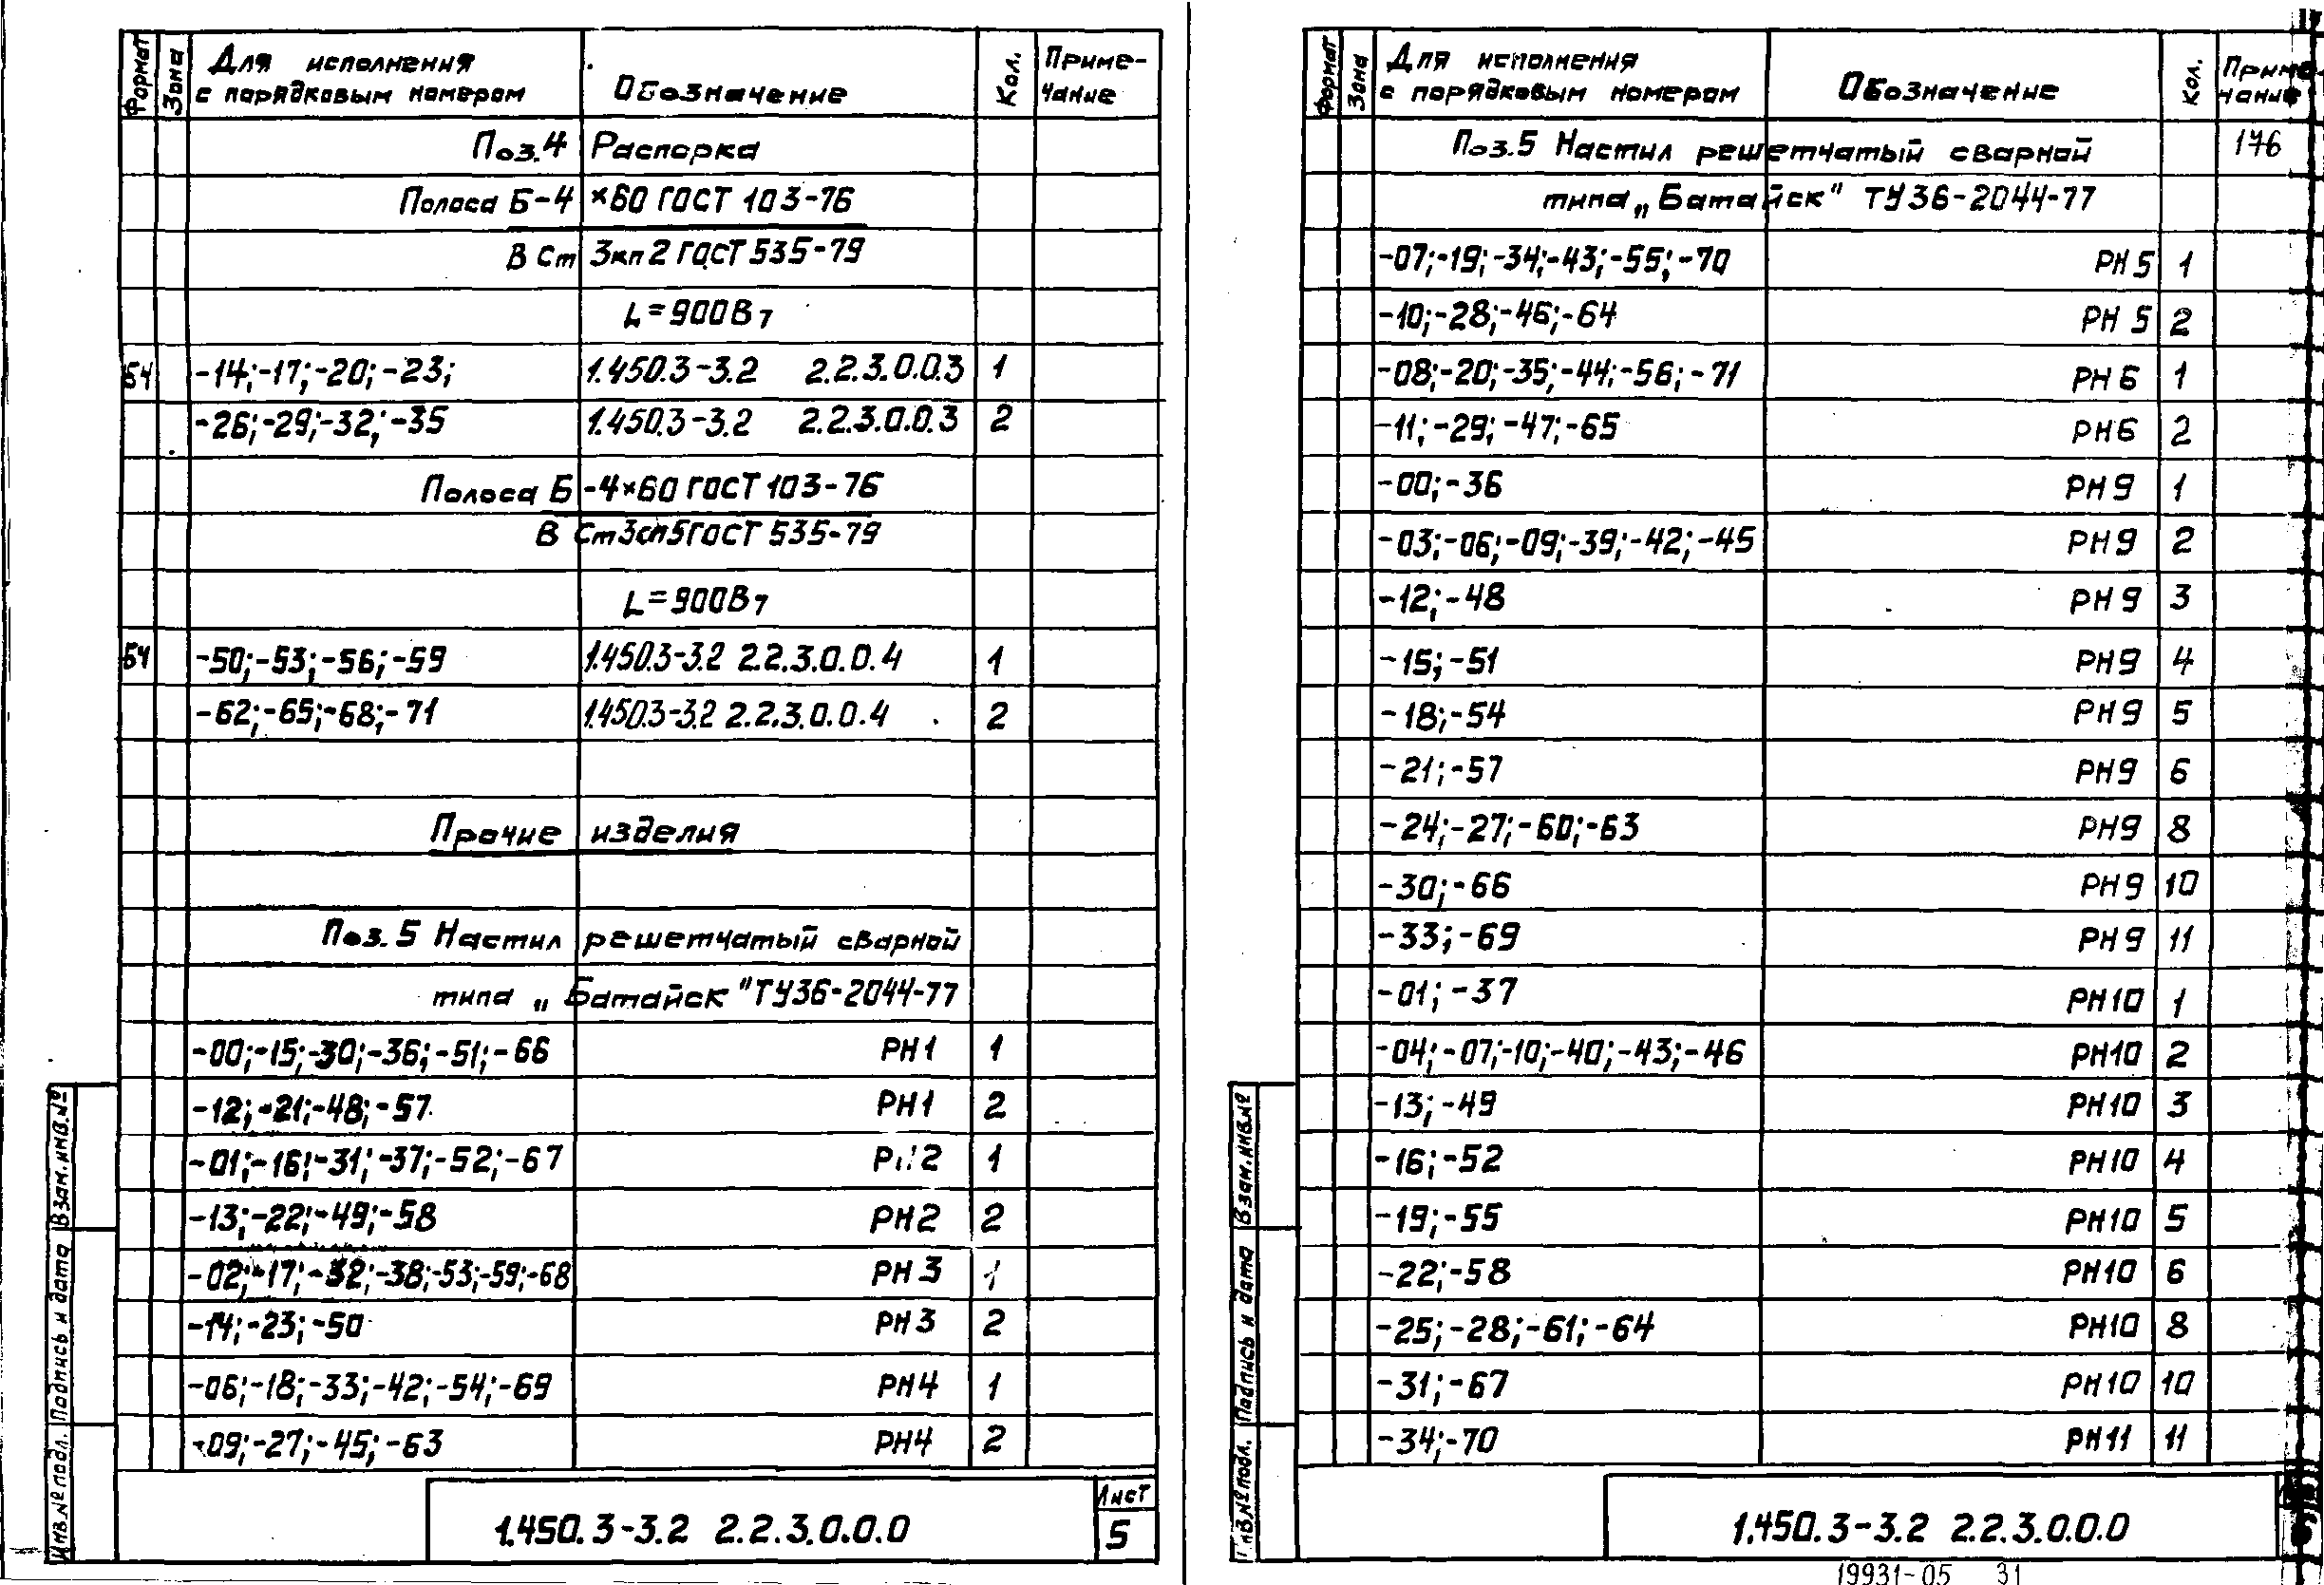 Формат Зона Для исполнения с порядковым номером Обозначение Кол. Примечание
Поз.4 Распорка
Полоса Б-4×60 ГОСТ 103-76
В Ст 3кп2 ГОСТ 535-79
L=900В7
Б4 -14;-17;-20;-23; 1.450.3-3.2 2.2.3.0.0.3 1
-26;-29;-32;-35 1.450.3-3.2 2.2.3.0.0.3 2
Полоса Б-4×60 ГОСТ 103-76
В Ст3сп5 ГОСТ 535-79
L=900В7
Б4 -50;-53;-56;-59 1.450.3-3.2 2.2.3.0.0.4 1
-62;-65;-68;-71 1.450.3-3.2 2.2.3.0.0.4 2
Прочие изделия
Поз.5 Настил решетчатый сварной
типа „Батайск" ТУ36-2044-77
-00;-15;-30;-36;-51;-66 РН1 1
-12;-21;-48;-57 РН1 2
-01;-16;-31;-37;-52;-67 РН2 1
-13;-22;-49;-58 РН2 2
-02;-17;-32;-38;-53;-59;-68 РН3 1
-14;-23;-50 РН3 2
-06;-18;-33;-42;-54;-69 РН4 1
-09;-27;-45;-63 РН4 2
Инв.№ подл. Подпись и дата Взам.инв.№
1.450.3-3.2 2.2.3.0.0.0
Лист
5
Формат Зона Для исполнения с порядковым номером Обозначение Кол. Примечание
Поз.5 Настил решетчатый сварной 176
типа „Батайск" ТУ36-2044-77
-07;-19;-34;-43;-55;-70 РН5 1
-10;-28;-46;-64 РН5 2
-08;-20;-35;-44;-56;-71 РН6 1
-11;-29;-47;-65 РН6 2
-00;-36 РН9 1
-03;-06;-09;-39;-42;-45 РН9 2
-12;-48 РН9 3
-15;-51 РН9 4
-18;-54 РН9 5
-21;-57 РН9 6
-24;-27;-60;-63 РН9 8
-30;-66 РН9 10
-33;-69 РН9 11
-01;-37 РН10 1
-04;-07;-10;-40;-43;-46 РН10 2
-13;-49 РН10 3
-16;-52 РН10 4
-19;-55 РН10 5
-22;-58 РН10 6
-25;-28;-61;-64 РН10 8
-31;-67 РН10 10
-34;-70 РН11 11
Инв.№ подл. Подпись и дата Взам.инв.№
1.450.3-3.2 2.2.3.0.0.0
19931-05 31